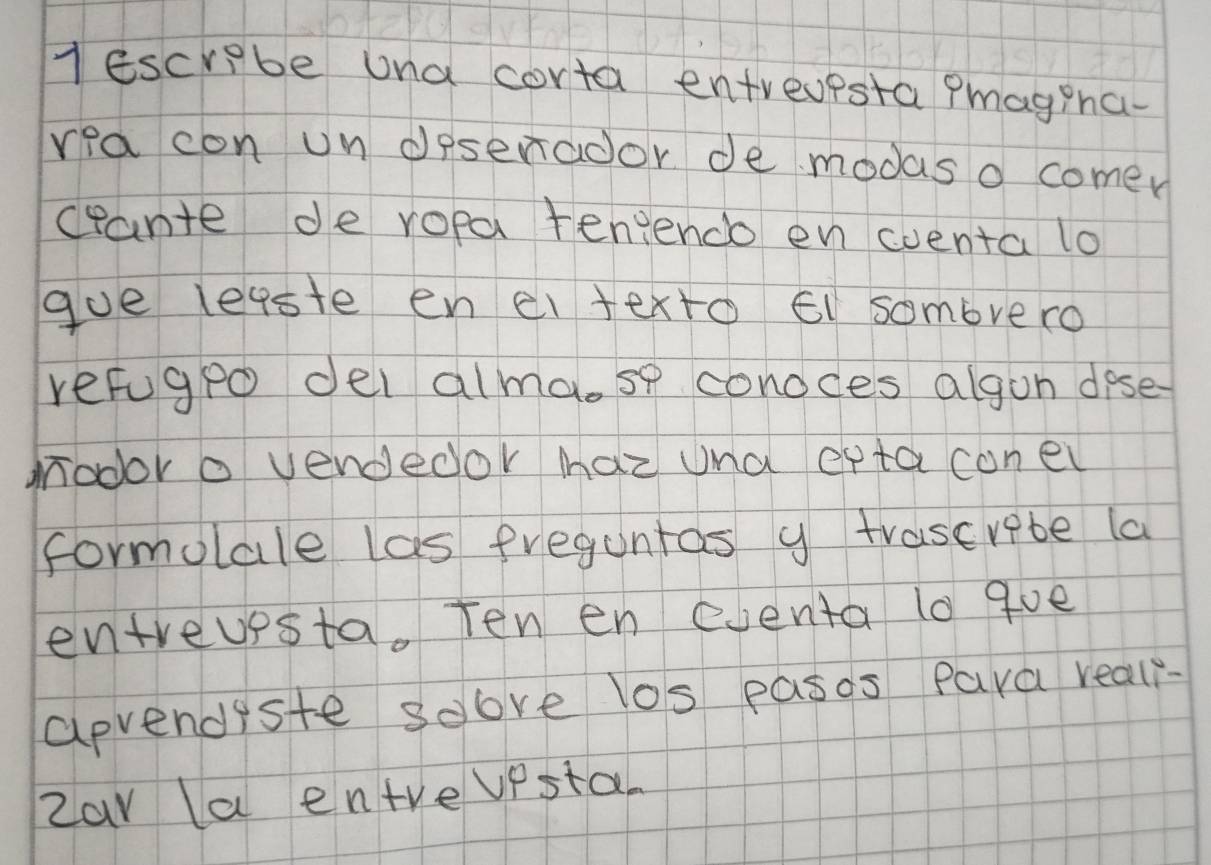 1 escribe una corta entrevista imagina-
ria con un diseñador de modas o comer
ciante de ropa teniendo en cuenta lo
que leiste en el texto El sombrero
refugio del alma. si conoces algun dise-
ñador o vendedor haz una cita con el
formulale las preguntas y trascribe la
entrevista. Ten en cuenta lo que
aprendiste sobre los pasos para reali-
zar la entrevista.